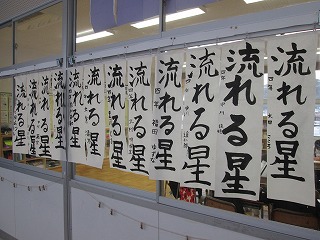 流れる星
流れる星
流れる星
流れる星
流れる星
流れる星
流れる星
流れる星
流れる星
流れる星
流れる星
流れる星